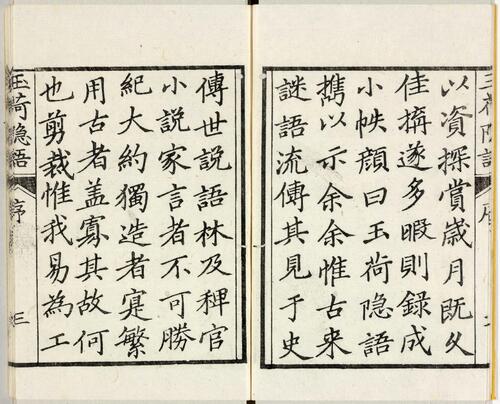 以資探賞歲月既久
佳搆遂多暇則録成
小帙顔曰玉荷隐語
擕以示余余惟古来
謎語流傳其見于史
傳世説語林及稗官
小説家言者不可勝
紀大約獨造者寔繁
用古者盖寡其故何
也剪裁惟我易為工
玉荷隐語 序 三